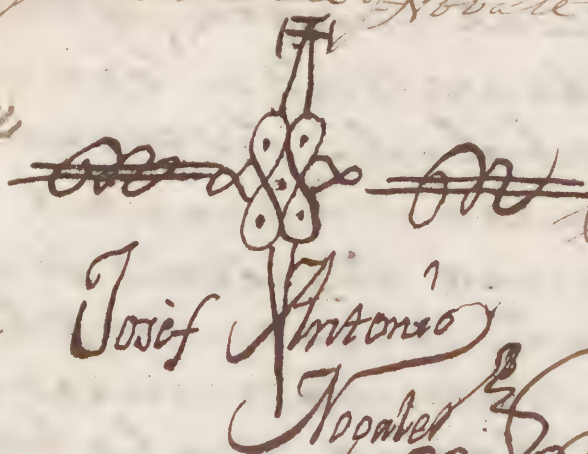 Josèf Antonio
Nogales